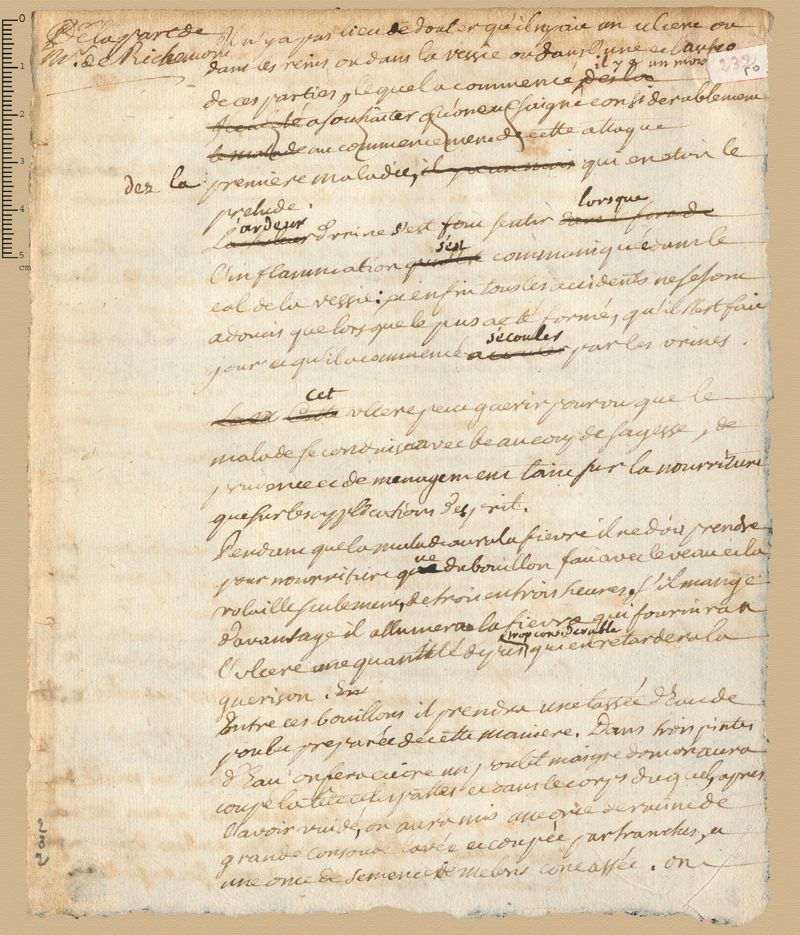 De la part de
Mr. de Richemont
232
50
Il n'y a pas lieu de douter qu'il n'y aie un ulcere ou
dans les reins ou dans la vessie ou dans l'une et l'autre
il y a un mois
de ces parties, lequel a commencé des la
il eut eté a souhaiter qu'on eut saigné considerablement
le malade au commencement de cette attaque
dez la premiere maladie, il y a un mois qui en etoit le
prelude.
ardeur lorsque
La d'urine s'est fait sentir
s'est
L'inflammation communiquée dans le
col de la vessie: et enfin tous les accidents ne se sont
adoucis que lorsque le pus a eté formé, qu'il s'est fait
s'ecouler
jour et qu'il a commencé a couler par les urines.
cet
Cette ulcere peut guerir pourvu que le
malade se conduise avec beaucoup de sagesse, de
prudence et de menagement tant sur la nourriture
que sur les applications d'esprit.
Pendant que la malade aura la fievre il ne doit prendre
ue
pour nourriture que du bouillon fait avec le veau et la
volaille seulement, de trois en trois heures, s'il mange
d'avantage il allumera la fievre qui fournira a
trop considerable
l'ulcere une quantité de pus qui en retardera la
guerison. En
Entre ces bouillons il prendra une tassée d'Eau de
poulet preparée de cette maniere. Dans trois pintes
d'Eau on fera cuire un poulet maigre dont on aura
coupé la tête et les pattes et dans le corps du quel, apres
l'avoir vuidé, on aura mis une once de racine de
grande consoude lavée et coupée par tranches, et
une once de semence de melons concassée. on
232